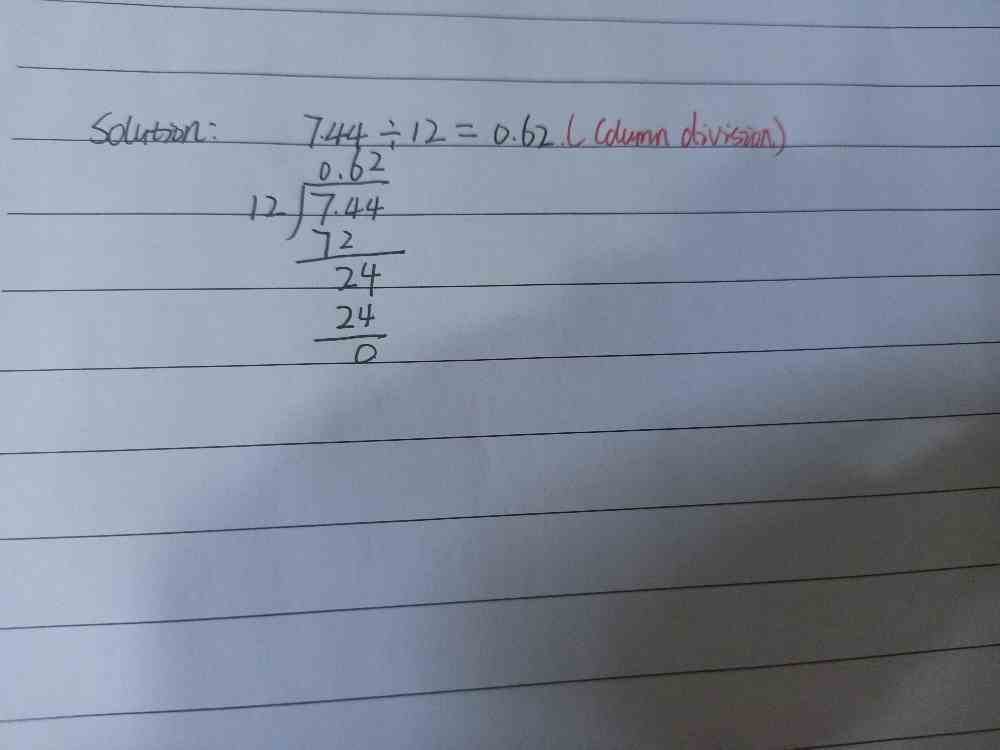 Solution: 7.44 ÷ 12 = 0.62. (Column division)
0.62
12 7.44
72
24
24
0